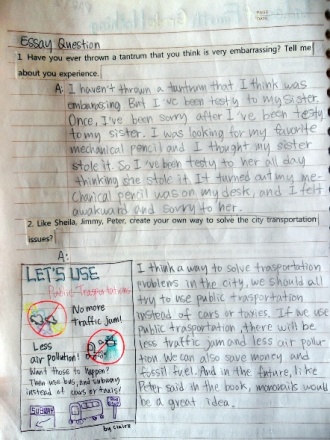 Essay Question
1. Have you ever thrown a tantrum that you think is very embarrassing? Tell me
about you experience.
A: I haven't thrown a tantrum that I think was
embarassing. But I've been testy to my sister.
Once, I've been sorry after I've been testy
to my sister. I was looking for my favorite
mechanical pencil and I thought my sister
stole it. So I've been testy to her all day
thinking she stole it. It turned out my me-
chanical pencil was on my desk, and I felt
awakward and sorry to her.
2. Like Sheila, Jimmy, Peter, create your own way to solve the city transportation
issues?
A:
LET'S USE
Public Trasportations
No more
Traffic Jam!
Less
air pollution!
Want those to happen?
Then use bus, and subway
instead of cars or taxis!
SUBWAY
by claire
I think a way to solve trasportation
problems in the city, we should all
try to use public trasportation
instead of cars or taxies. If we use
public trasportation, there will be
less traffic jam and less air pollu-
tion. We can also save money and
fossil fuel. And in the future, like
Peter said in the book, monorails would
be a great idea.